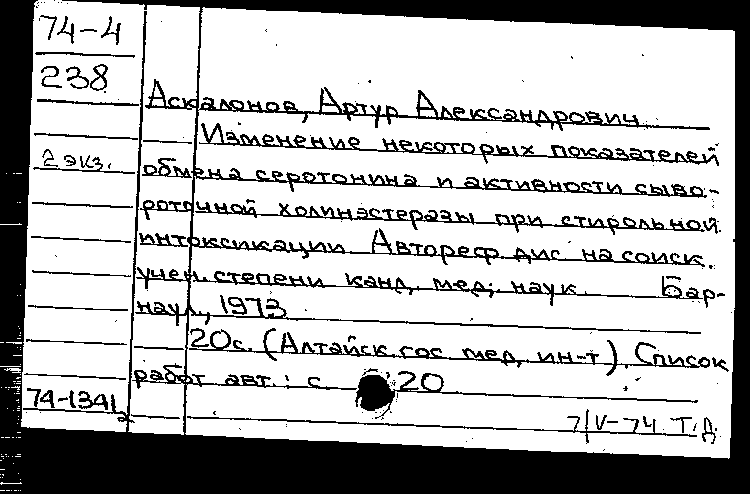 74-4
238
Аскалонов, Артур Александрович.
Изменение некоторых показателей
2 экз.
обмена серотонина и активности сыво-
роточной холинэстеразы при стирольной
интоксикации. Автореф. дис. на соиск.
учен. степени канд. мед. наук. Бар-
наул, 1973
20с. (Алтайск. гос. мед. ин-т). Список
работ авт.: с 20
74-1341
2
7/V-74 Т.Д.